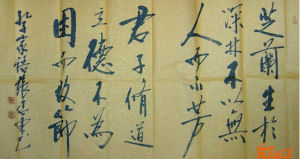 芝蘭生於
深林不以無
人而不芳
君子脩道
立德不為
困而改節
家語張